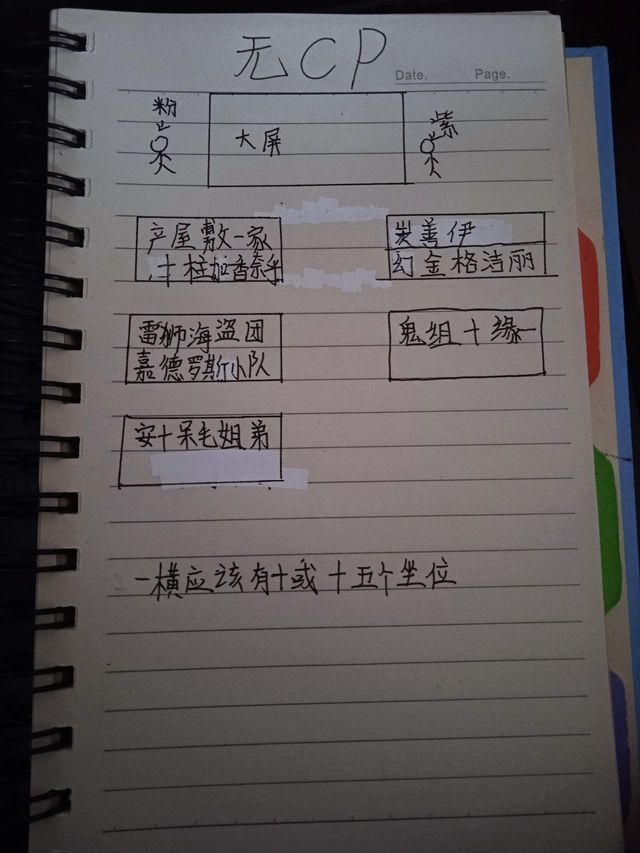 无CP
Date.
Page.
粉
大屏
紫
产屋敷一家
十柱加香奈乎
炭善伊
幻金格洁丽
雷狮海盗团
嘉德罗斯小队
鬼组十缘一
安十呆毛姐弟
一横应该有十或十五个坐位